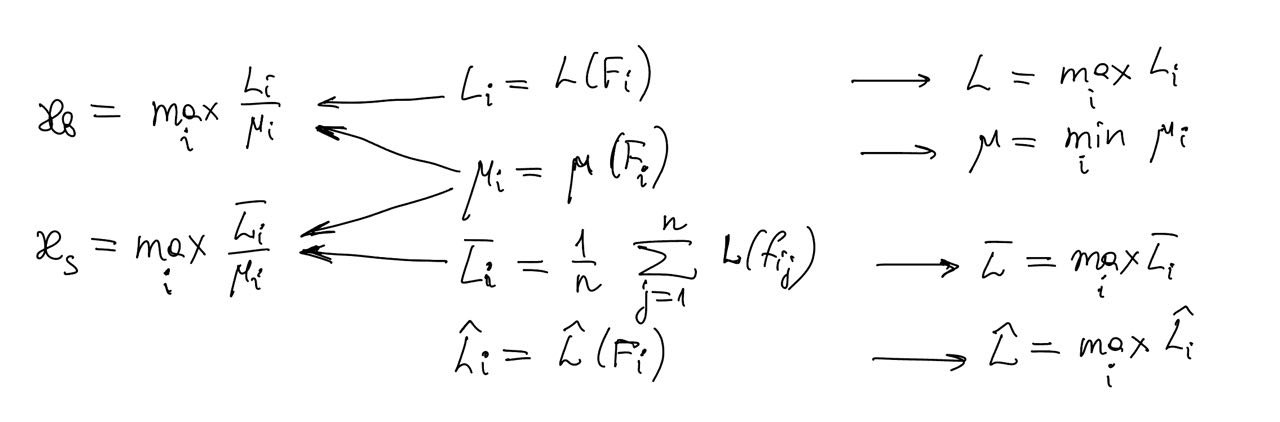 ϰ_b = max_i L_i/μ_i ← L_i = L(F_i) → L = max_i L_i
μ_i = μ(F_i) → μ = min_i μ_i
ϰ_s = max_i L̅_i/μ_i ← L̅_i = 1/n ∑_{j=1}^{n} L(f_{ij}) → L̅ = max_i L̅_i
L̂_i = L̂(F_i) → L̂ = max_i L̂_i